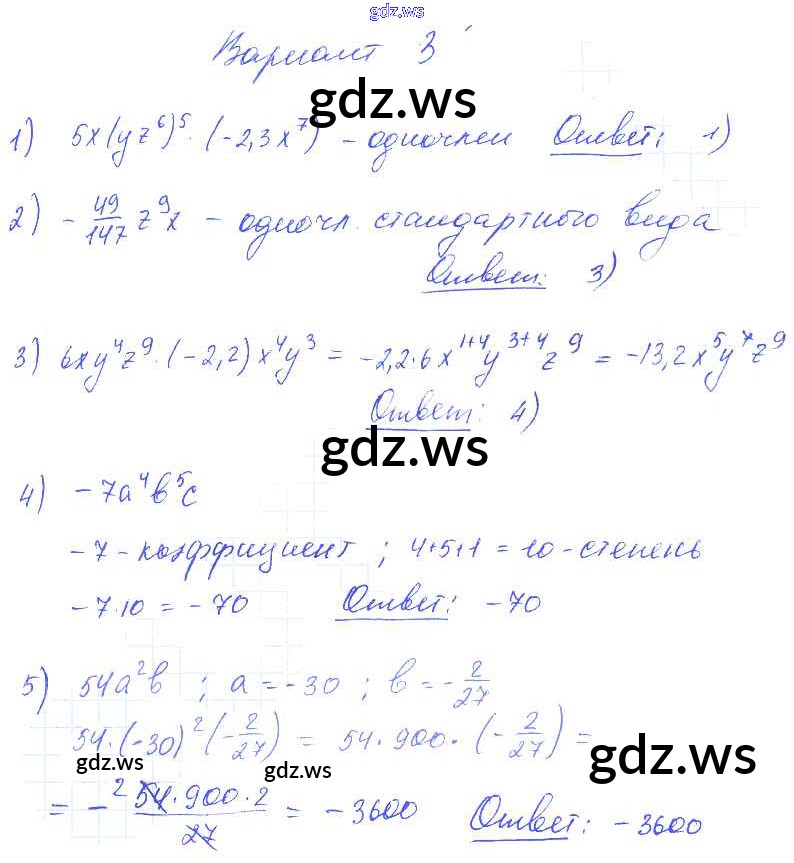 gdz.ws
Вариант 3
gdz.ws
1) 5x(yz⁶)⁵·(-2,3x⁷) - одночлен Ответ: 1)
2) -49/147 z⁹x - одночл. стандартного вида
Ответ: 3)
3) 6xy⁴z⁹·(-2,2)x⁴y³ = -2,2·6x¹⁺⁴y³⁺⁴z⁹ = -13,2x⁵y⁷z⁹
Ответ: 4)
gdz.ws
4) -7a⁴b⁵c
-7 - коэффициент ; 4+5+1 = 10 - степень
-7·10 = -70 Ответ: -70
5) 54a²b ; a = -30 ; b = -2/27
54·(-30)²(-2/27) = 54·900·(-2/27) =
gdz.ws gdz.ws gdz.ws
= -² 54·900·2/27 = -3600 Ответ: -3600